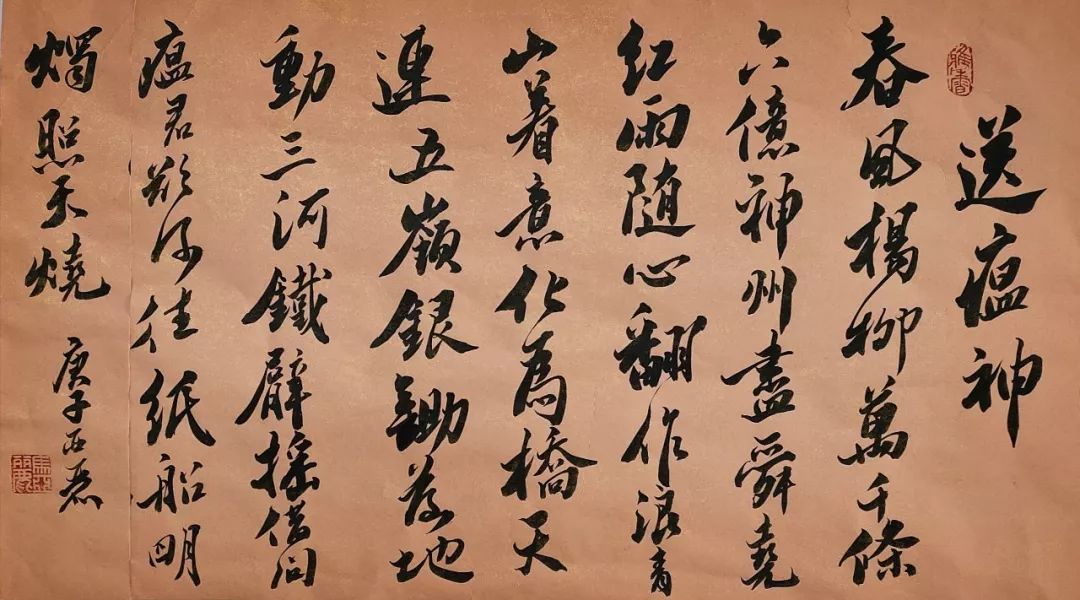 送瘟神
春風楊柳萬千條
六億神州盡舜堯
紅雨随心翻作浪青
山着意化為橋天
連五嶺銀鋤落地
動三河鐵臂摇借问
瘟君欲何往紙船明
燭照天燒 庚子